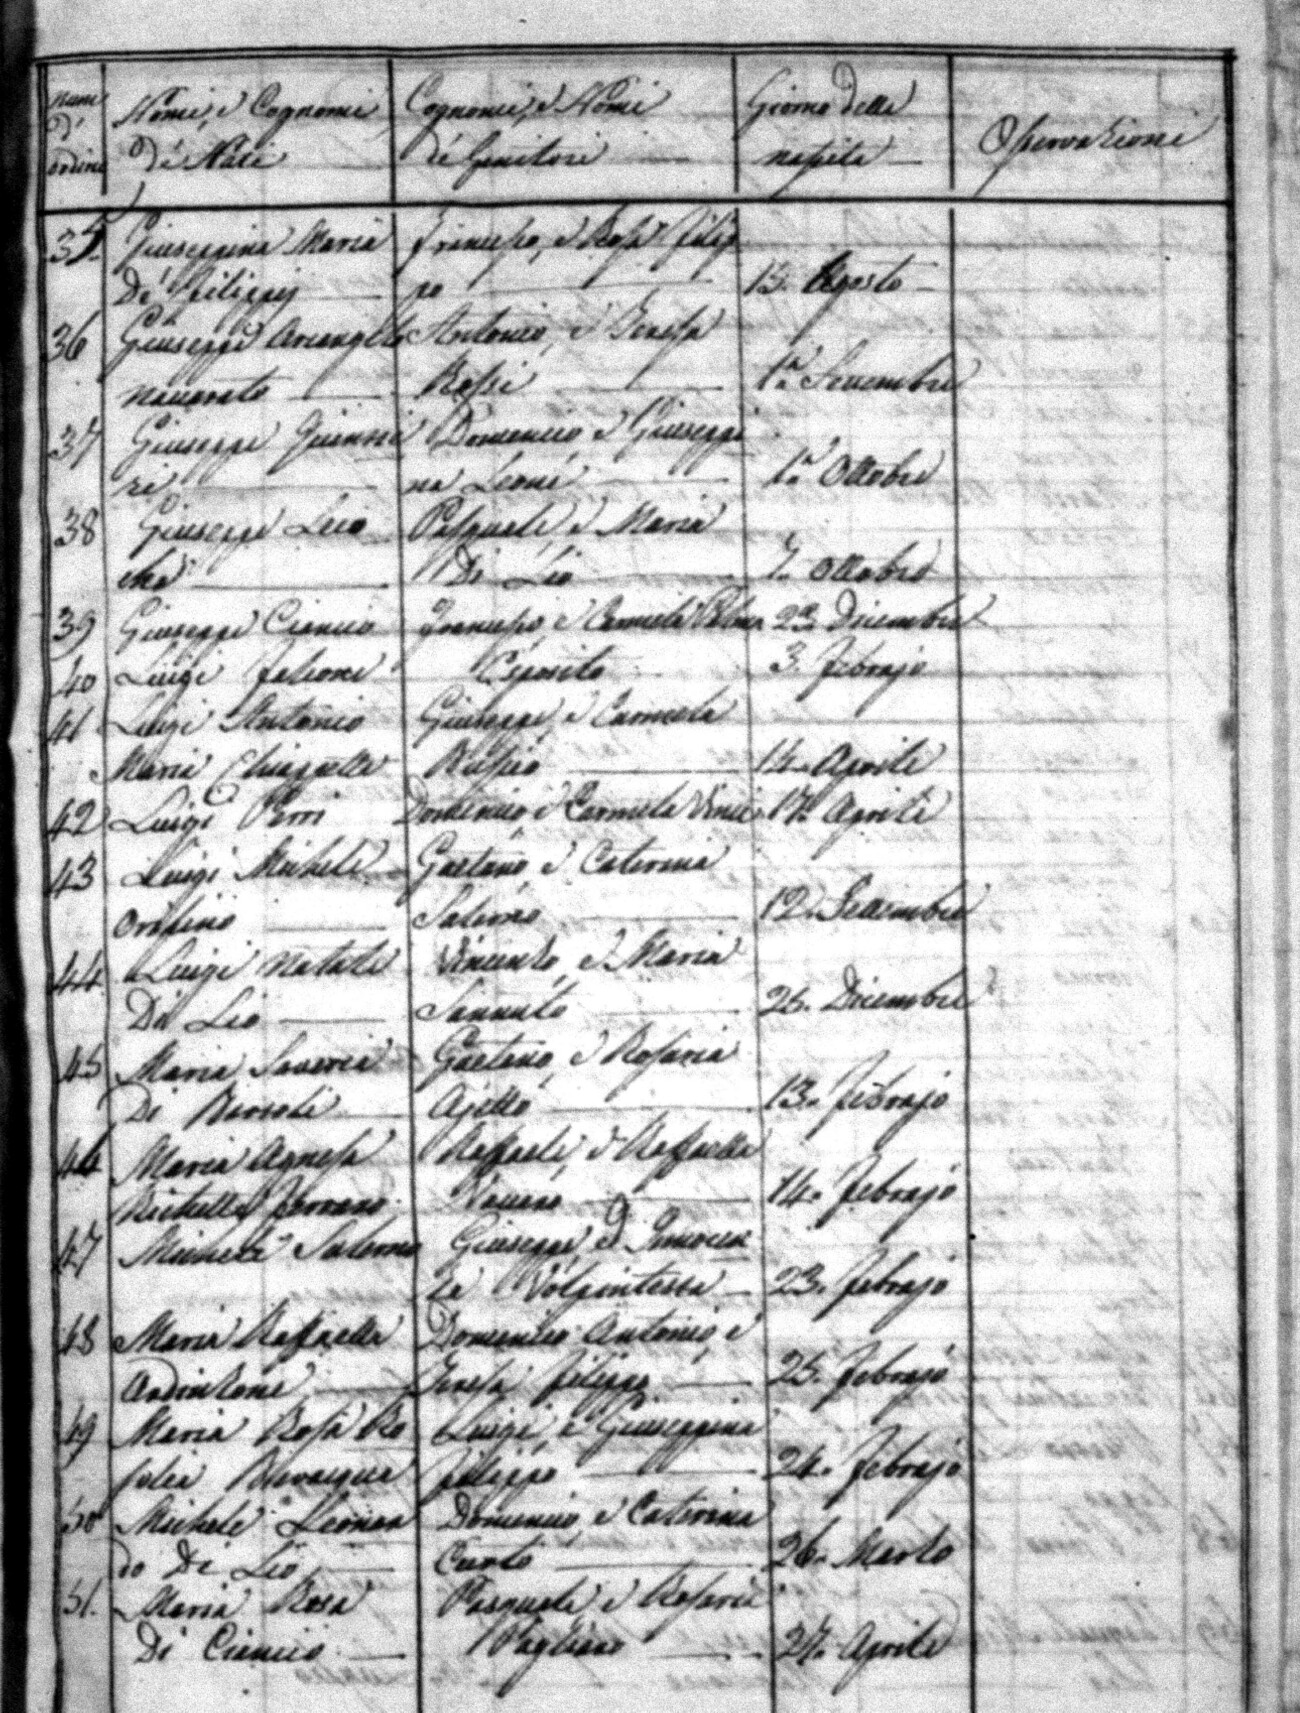 Num.
d'
ordine
Nomi, e Cognomi
de' Nati
Cognomi, e Nomi
de' Genitori
Giorno della
nascita
Osservazioni
35. Giuseppina Maria Francesco, e Rosa Filip
De Filippis po 15. Agosto
36 Giuseppe Arcangelo Antonio, e Teresa
Navarato Rossi 1.° Settembre
37 Giuseppe Domenico, e Giuseppi
na Leone 1.° Ottobre
38 Giuseppe Pasquale, e Maria
Di Leo 7. Ottobre
39 Giuseppe Ciancio Francesco, e Carmela 23. Dicembre
40 Luigi Esposito 3. Febrajo
41 Luigi Antonio Giuseppe, e Carmela
Maria Chiappetta Russo 14. Aprile
42 Luigi Perri Domenico, e Carmela Vinci 17. Aprile
43 Luigi Michele Gaetano, e Caterina
Orofino Salerno 12. Settembre
44 Luigi Natale Vincenzo, e Maria
Di Leo Sannuto 25. Dicembre
45 Maria Saveria Gaetano, e Rosaria
Di Ajello 13. Febrajo
46 Maria Agnesa Raffaele, e Raffaella
Ferraro 14. Febrajo
47 Michele Salerno Giuseppe, e Innocen
za Volpintesta 23. Febrajo
48 Maria Raffaella Domenico Antonio, e
Teresa Filippo 25. Febrajo
49 Maria Rosa Ro Luigi, e Giuseppina
salia Bevacqua Filippo 24. Febrajo
50 Michele Leonar Domenico, e Caterina
do Di Leo Curto 26. Marzo
51. Maria Rosa Pasquale, e Rosaria
Di Ciancio Pagliaro 27. Aprile